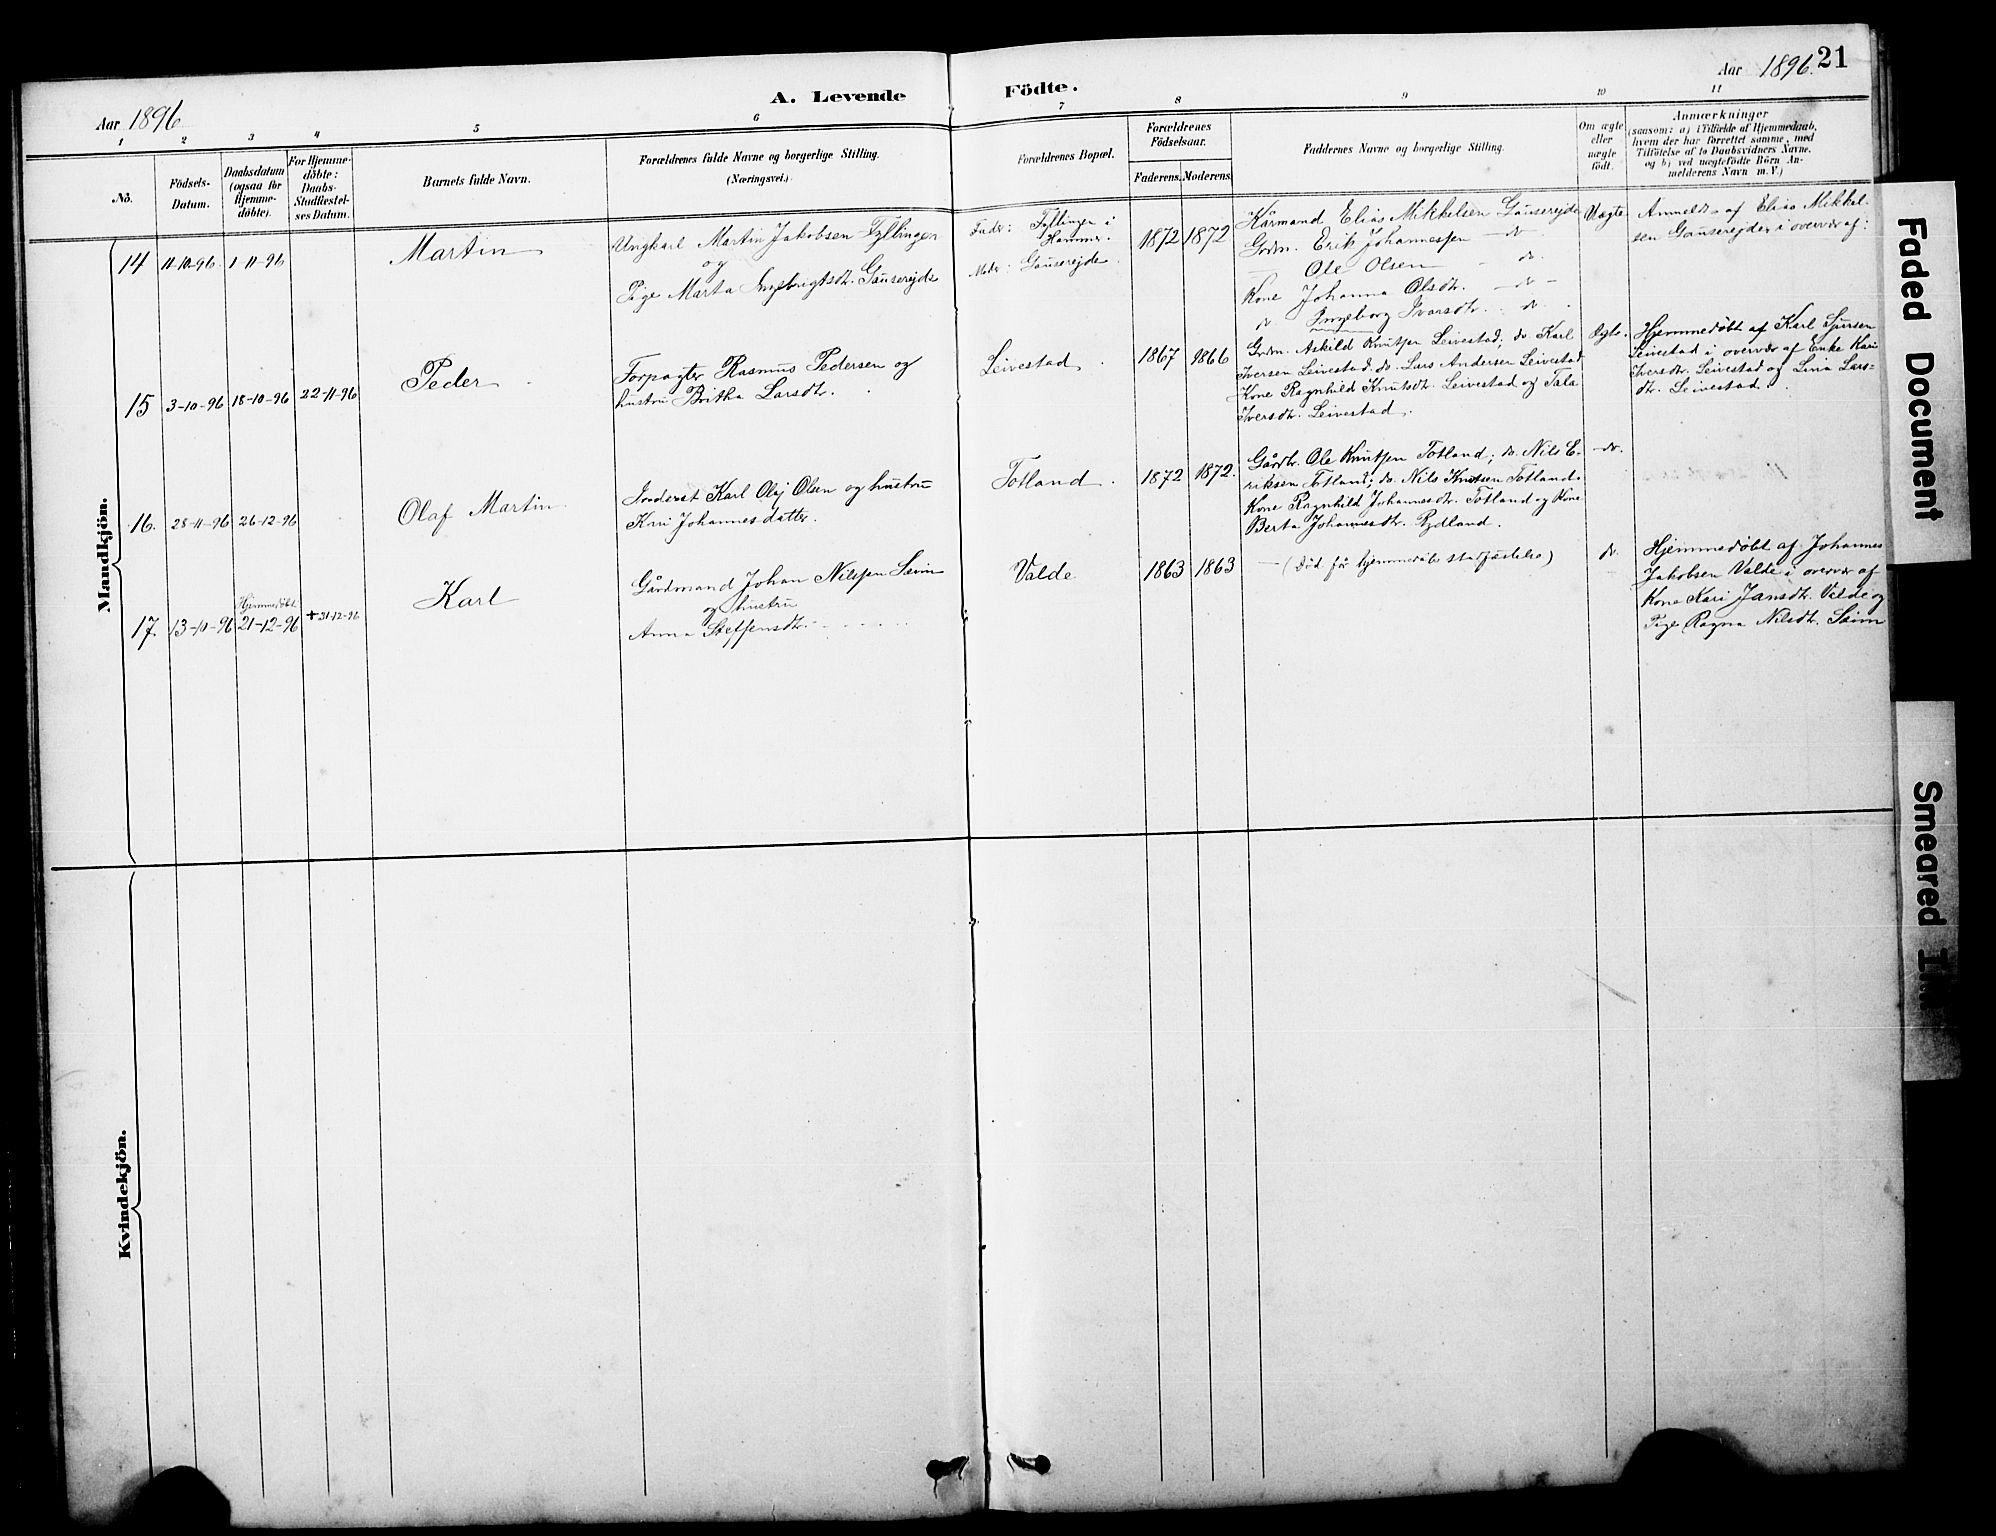 Aar 1896
A. Levende Födte.
Aar 1896. 21
1 2 3 4 5 6 7 8 9 10 11
No.
Födsels-
Datum.
Daabsdatum
(ogsaa for
Hjemme-
döbte).
For Hjemme-
döbte:
Daabs-
Stadfæstel-
ses Datum.
Barnets fulde Navn.
Forældrenes fulde Navne og borgerlige Stilling.
(Næringsvei.)
Forældrenes Bopæl.
Forældrenes
Födselsaar.
Faderens. Moderens.
Faddernes Navne og borgerlige Stilling.
Om ægte
eller
uægte
födt.
Anmærkninger
(saasom: a) i Tilfælde af Hjemmedaab,
hvem der har forrettet samme, med
Tilföielse af to Daabsvidners Navne,
og b) ved uægtefödte Börn An-
melderens Navn m. V.)
Mandkjön.
14 11-10-96. 1-11-96
Martin
Ungkarl Martin Jakobsen Fyllingen
og
Pige Marta Ingebrigtsdtr. Gauserejde
Fader: Fyllingen i
Hammer.
Moder: Gauserejde.
1872 1872
Kårmand Elias Mikkelsen Gauserejde
Grdm. Erik Johannessen - do -
Ole Olsen - do.
Kone Johanna Olsdtr. - do -
do. Ingeborg Ivarsdtr. - do.
Uægte
Anmeldt af Elias Mikkel-
sen Gauserejde, i overvær af:
15 3-10-96 18-10-96 22-11-96
Peder
Forpagter Rasmus Pedersen og
hustru Britha Larsdtr.
Leivestad
1867 1866
Grdm. Askild Knutsen Leivestad; do Karl
Iversen Leivestad, do. Lars Andersen Leivestad
Kone Ragnhild Knutsdtr. Leivestad og
Iversdtr. Leivestad.
Ægte.
Hjemmedøbt af Karl Iversen
Leivestad i overvær af Enke Kari
Iversdtr. Leivestad og Lina Lars-
dtr. Leivestad
16. 28-11-96 26-12-96
Olaf Martin
Inderst Karl Olaj Olsen og hustru
Kari Johannesdatter.
Totland.
1872 1872.
Gårdbr. Ole Knutsen Totland; do. Nils E-
riksen Totland; do. Nils Knutsen Totland.
Kone Ragnhild Johannesdtr. Totland og Kone
Berta Johannesdtr. Rydland.
- do.
17. 13-10-96 Hjemmedøbt
21-12-96 + 31-12-96
Karl
Gårdmand Johan Nilssen Sæim
og hustru
Anna Steffensdtr.
Valde
1863 1863
- (Død før hjemmedåbs stadfæstelse)
do.
Hjemmedøbt af Johannes
Jakobsen Valde i overvær af
Kone Kari Jansdtr. Valde og
Pige Ragna Nilsdtr. Sæim
Kvindekjön.
Faded Document
Smeared